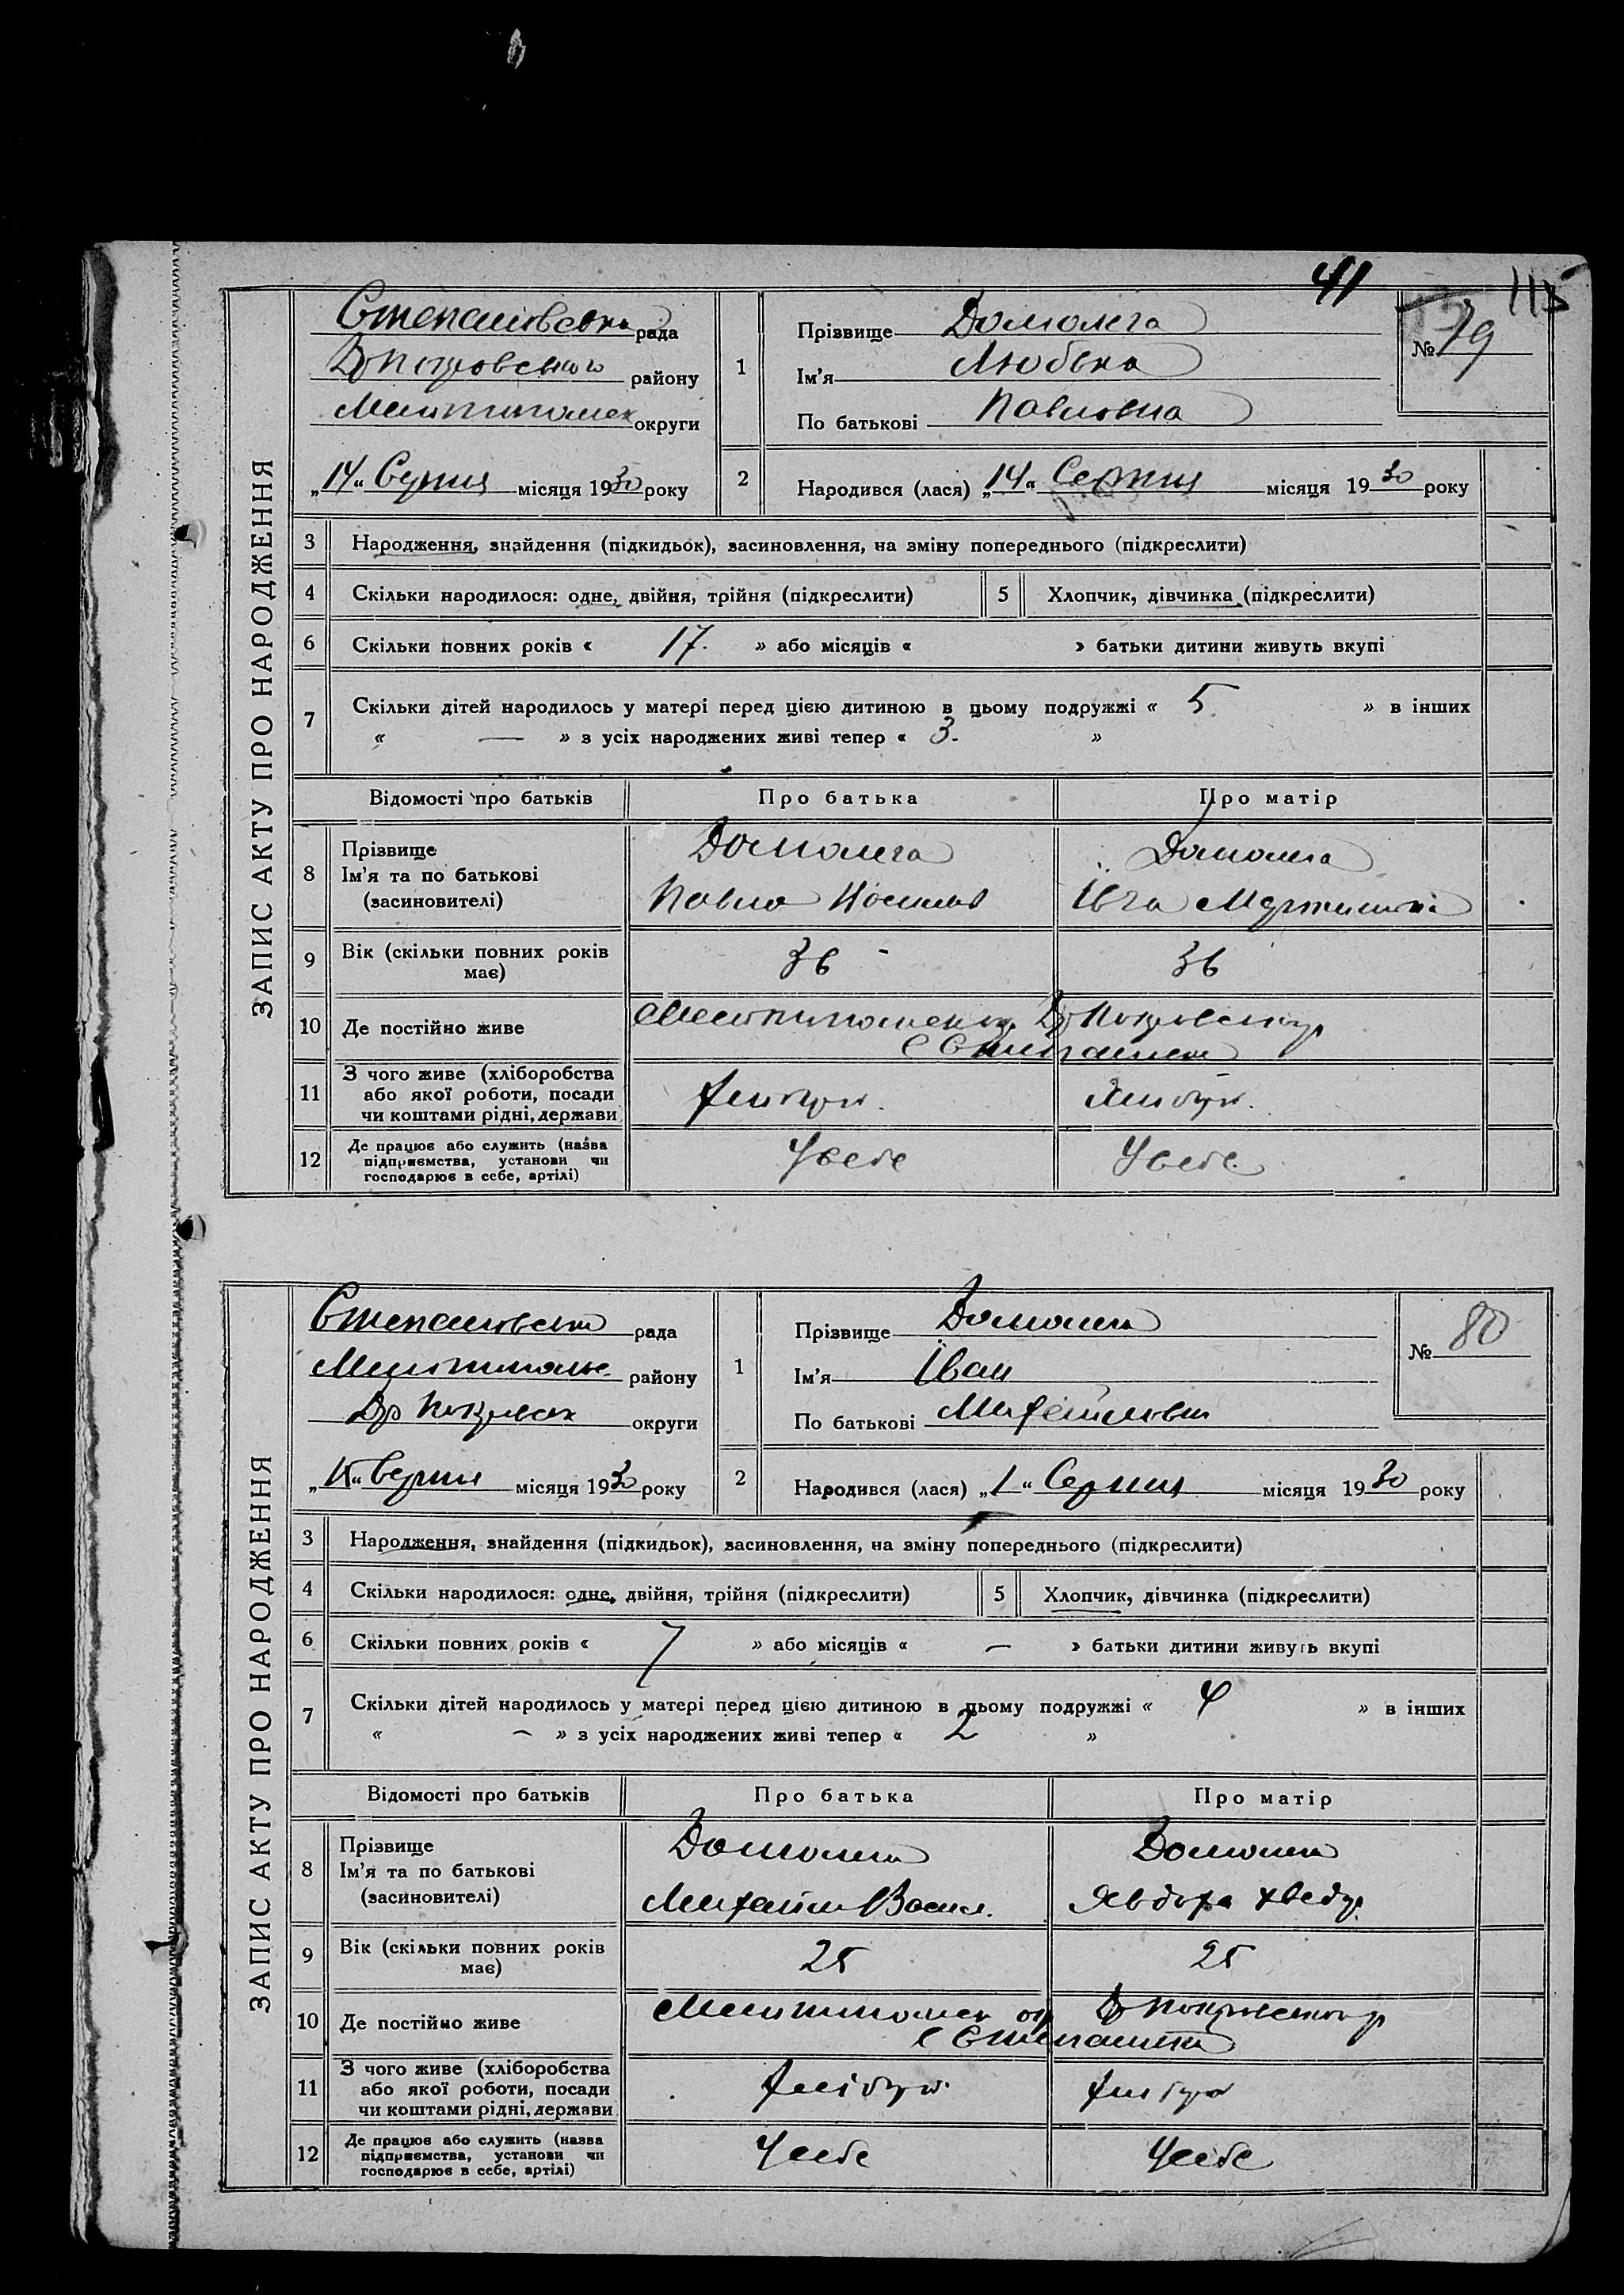 41
115
ЗАПИС АКТУ ПРО НАРОДЖЕННЯ
Степановська рада
В Покровського району
Мелитопольск округи
„14“ Серпня місяця 1930 року
1
Прізвище Домолега
Ім'я Любька
По батькові Павловна
№ 79
2
Народився (лася) „14“ Серпня місяця 1930 року
3 Народження, знайдення (підкидьок), засиновлення, на зміну попереднього (підкреслити)
4 Скільки народилося: одне, двійня, трійня (підкреслити) 5 Хлопчик, дівчинка (підкреслити)
6 Скільки повних років « 17. » або місяців « » батьки дитини живуть вкупі
7 Скільки дітей народилось у матері перед цією дитиною в цьому подружжі « 5. » в інших
« — » з усіх народжених живі тепер « 3. »
Відомості про батьків Про батька Про матір
8 Прізвище
Ім'я та по батькові
(засиновителі)
Домолега
Павло
Домолега
Івга
9 Вік (скільки повних років
має)
36 36
10 Де постійно живе
В Покровськ р
с Степанівка
11 З чого живе (хліборобства
або якої роботи, посади
чи коштами рідні, держави
12 Де працює або служить (назва
підприємства, установи чи
господарює в себе, артілі)
У себе У себе
ЗАПИС АКТУ ПРО НАРОДЖЕННЯ
Степановська рада
Мелитопольс. району
В Покровськ округи
„15“ Серпня місяця 1930 року
1
Прізвище Домолега
Ім'я Іван
По батькові Михайлович
№ 80
2
Народився (лася) „1“ Серпня місяця 1930 року
3 Народження, знайдення (підкидьок), засиновлення, на зміну попереднього (підкреслити)
4 Скільки народилося: одне, двійня, трійня (підкреслити) 5 Хлопчик, дівчинка (підкреслити)
6 Скільки повних років « 7 » або місяців « — » батьки дитини живуть вкупі
7 Скільки дітей народилось у матері перед цією дитиною в цьому подружжі « 4 » в інших
« — » з усіх народжених живі тепер « 2 »
Відомості про батьків Про батька Про матір
8 Прізвище
Ім'я та по батькові
(засиновителі)
Домолега
Михайло Васил.
Домолега
Явдоха Хведр.
9 Вік (скільки повних років
має)
25 25
10 Де постійно живе
Мелитопольск ок В Покровськ р
с Степанівка
11 З чого живе (хліборобства
або якої роботи, посади
чи коштами рідні, держави
12 Де працює або служить (назва
підприємства, установи чи
господарює в себе, артілі)
У себе У себе